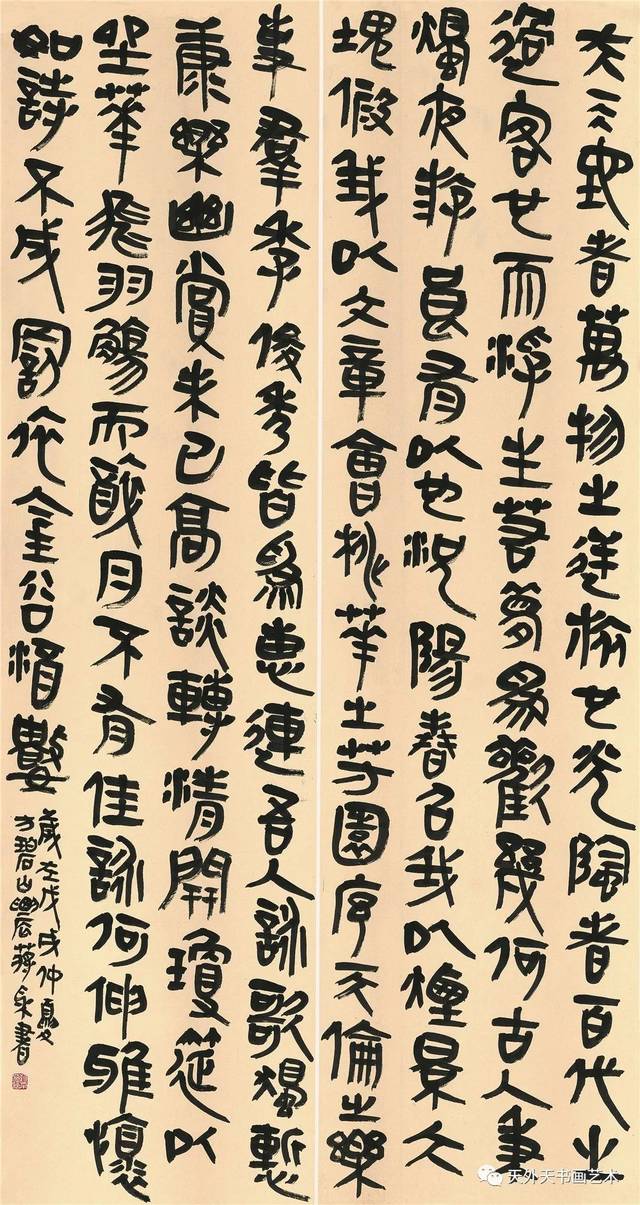 夫天地者萬物之逆旅也光陰者百代之
過客也而浮生若夢爲歡幾何古人秉
燭夜遊良有以也況陽春召我以煙景大
塊假我以文章會桃華之芳園序天倫之樂
事羣季俊秀皆爲惠連吾人詠歌獨慙
康樂幽賞未已高談轉清開瓊筵以
坐華飛羽觴而醉月不有佳詠何伸雅懷
如詩不成罰依金谷酒數
歲在戊戌仲夏
於碧山幽居蔣書
天外天书画艺术